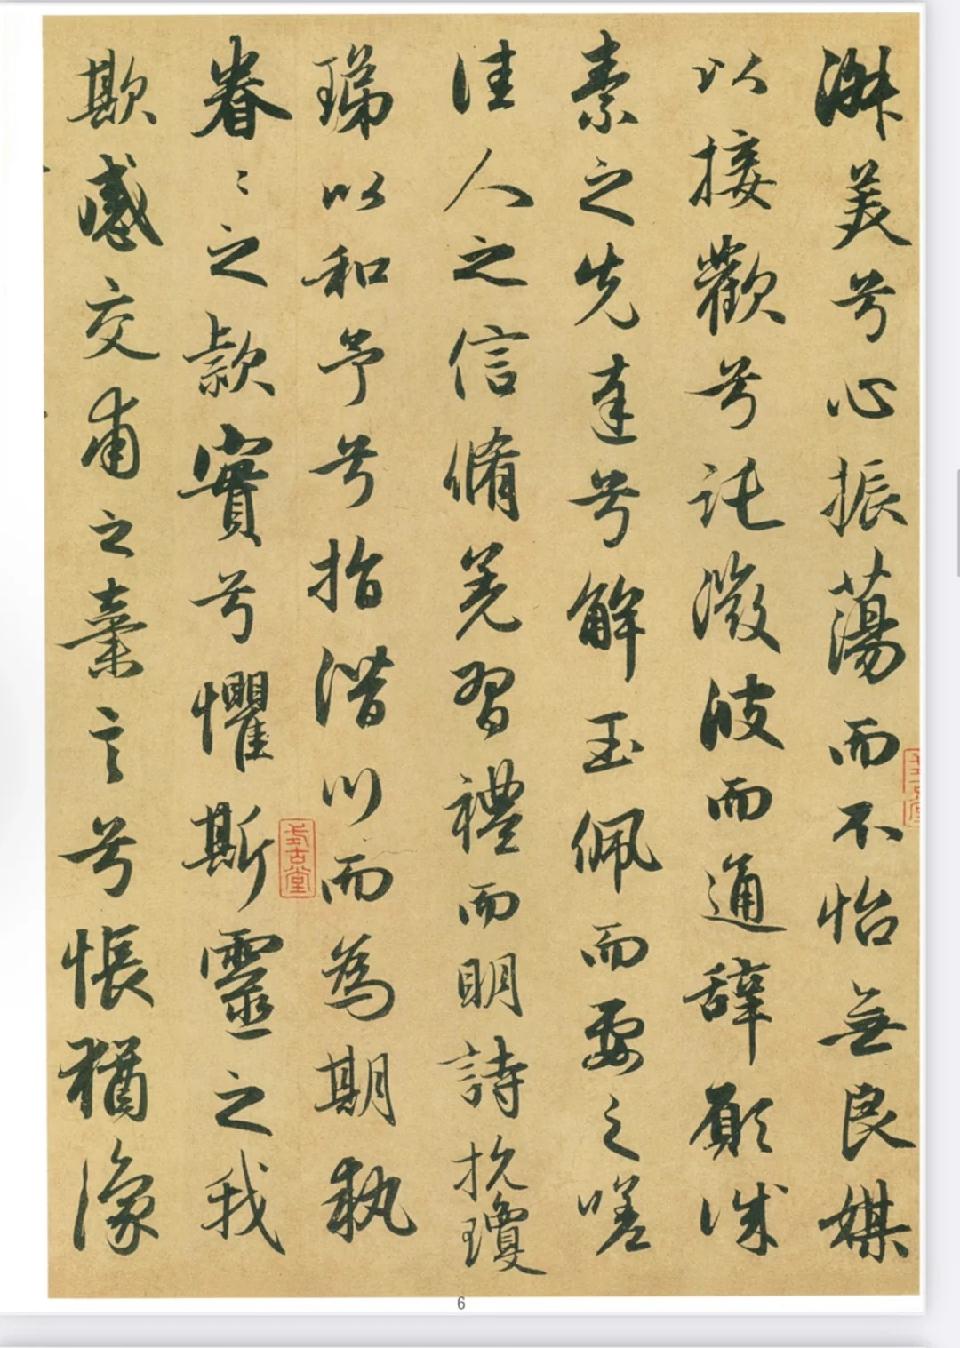 淑美兮心振蕩而不怡無良媒
以接歡兮託微波而通辭願誠
素之先達兮解玉佩而要之嗟
佳人之信脩羌習禮而明詩抗瓊
珶以和予兮指潛川而為期執
眷〻之款實兮懼斯靈之我
欺感交甫之棄言兮悵猶豫
式古堂
6